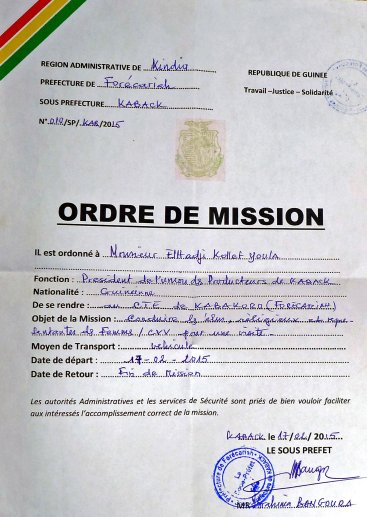 REGION ADMINISTRATIVE DE Kindia
PREFECTURE DE Forécariah
SOUS PREFECTURE KABACK
N° 010/SP/KAB/2015
REPUBLIQUE DE GUINEE
Travail –Justice – Solidarité
ORDRE DE MISSION
IL est ordonné à Monsieur Elhadji Kollet Youla
Fonction : Président de l'union de Producteurs de KABACK
Nationalité : Guinéenne
De se rendre : au CTE de KABAKORO (FORECARIAH)
Objet de la Mission : Conduire les élus, religieux et repré-
sentantes des femmes / CVV pour une visite
Moyen de Transport : Véhicule
Date de départ : 17-02-2015
Date de Retour : Fin de Mission
Les autorités Administratives et les services de Sécurité sont priés de bien vouloir faciliter
aux intéressés l'accomplissement correct de la mission.
KABACK le 17/02/2015
LE SOUS PREFET
MR BANGOURA